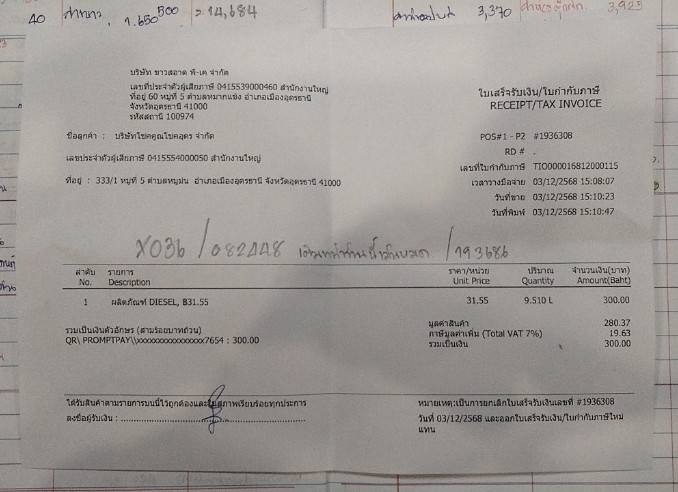 40 ค่าทาง, 1.650 500 = 14,684 3,370 3,925
บริษัท ขาวสอาด พี-เค จำกัด
เลขที่ประจำตัวผู้เสียภาษี 0415539000460 สำนักงานใหญ่
ที่อยู่ 60 หมู่ที่ 5 ตำบลหมากแข้ง อำเภอเมืองอุดรธานี
จังหวัดอุดรธานี 41000
รหัสสถานี 100974
ใบเสร็จรับเงิน/ใบกำกับภาษี
RECEIPT/TAX INVOICE
ชื่อลูกค้า : บริษัทโชคคูณโชคอุดร จำกัด
POS#1 - P2 #1936308
RD # .
เลขประจำตัวผู้เสียภาษี 0415554000050 สำนักงานใหญ่
เลขที่ใบกำกับภาษี TIO000016812000115
ที่อยู่ : 333/1 หมู่ที่ 5 ตำบลหมูม่น อำเภอเมืองอุดรธานี จังหวัดอุดรธานี 41000
เวลาวางมือจ่าย 03/12/2568 15:08:07
วันที่ขาย 03/12/2568 15:10:23
วันที่พิมพ์ 03/12/2568 15:10:47
X036 / 082448 /193686
ลำดับ รายการ ราคา/หน่วย ปริมาณ จำนวนเงิน(บาท)
No. Description Unit Price Quantity Amount(Baht)
1 ผลิตภัณฑ์ DIESEL, B31.55 31.55 9.510 L 300.00
มูลค่าสินค้า 280.37
รวมเป็นเงินตัวอักษร (สามร้อยบาทถ้วน)
ภาษีมูลค่าเพิ่ม (Total VAT 7%) 19.63
QR\ PROMPTPAY\\xxxxxxxxxxxxxxxxx7654 : 300.00
รวมเป็นเงิน 300.00
ได้รับสินค้าตามรายการบนนี้ไว้ถูกต้องและในสภาพเรียบร้อยทุกประการ
หมายเหตุ:เป็นการยกเลิกใบเสร็จรับเงินเลขที่ #1936308
ลงชื่อผู้รับเงิน :
วันที่ 03/12/2568 และออกใบเสร็จรับเงิน/ใบกำกับภาษีใหม่
แทน